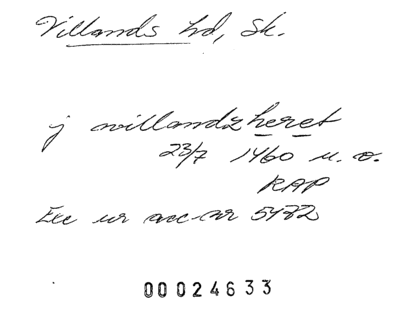 Villands hd, Sk.
j willandz heret
23/7 1460 u. o.
RAP
Exc ur acc-nr 5482
00024633